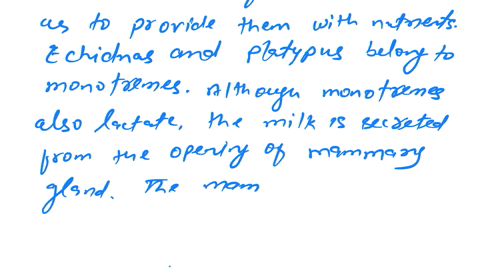 as to provide them with nutrients.
Echidnas and platypus belong to
monotremes. Although monotremes
also lactate, the milk is secreted
from the opening of mammary
gland. The mam